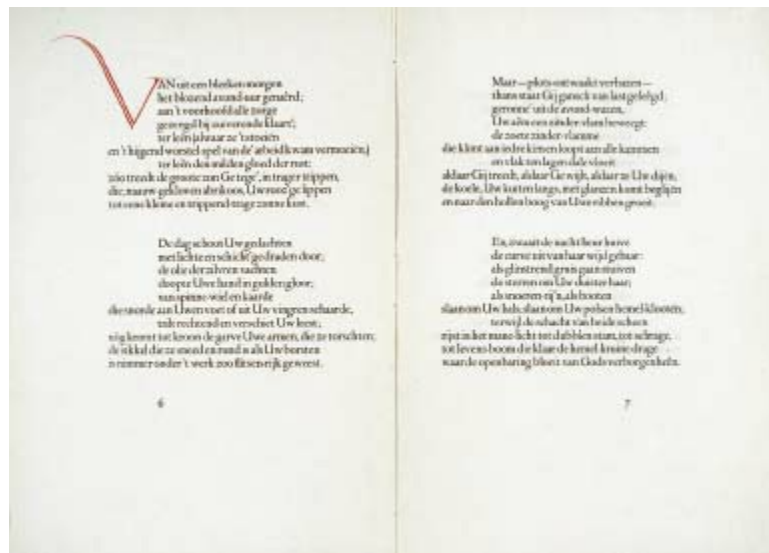 VAN uit een bleeken morgen
het blozend avond-uur genaêrd;
aan 't voorhoofd alle zorge
gezengd bij zuiverende
ter leên
en 't hijgend worstel-spel van de' arbeid kwam vermoeien,
ter leên den milden gloed der rust:
zóo treedt de groote zon Ge tege', in trager trippen,
die, nauw-gekloven abrikoos, Uw lippen
tot eene kleine en trippend-trage zonne kust.
De dag schoot Uw gedachten
met lichte en schicht'ge draden door;
de olie der zilvren nachten
doopte Uwe hand in gulden gloor;
van spinne-wiel en kaarde
die snorde aan Uwen voet of uit Uw vingren schaarde,
trilt rechtend en verschiet Uw leest;
nóg kromt tot kroon de garve Uwe armen, die ze torschten;
de sikkel die ze sneed en rond is als Uw borsten
is nimmer onder 't werk zoo flitsen-rijk geweest.
6
Maar — plots ontwaakt verbazen —
thans staat Gij gansch van last gelêgd;
geronne' uit de avond-wazen,
Uw adem een zinder-vlam beweegt;
de zoete zinder-vlamme
die klimt aan iedre kim en loopt aan alle kammen
en vlak ten lagen dale vloeit
aldaar Gij treedt, aldaar Ge wijlt, aldaar ze Uw dijen,
de koele, Uw kuiten langs, met glanzen komt beglijên
en naar den hollen boog van Uwe ribben groeit.
En, zwaait de nacht heur huive
de curve uit van haar wijd gebaar:
als glinstrend gruis gaan stuiven
de sterren om Uw duister haar;
als snoeren rij'n, als booten
slaan om Uw hals, slaan om Uw polsen hemel-klooten;
terwijl de schacht van beide scheen
rijst in het mane-licht tot dubblen stam, tot schrage,
tot levens-boom die klaar de hemel-kruine drage
waar de openbaring bloeit van Gods verborgenheên.
7